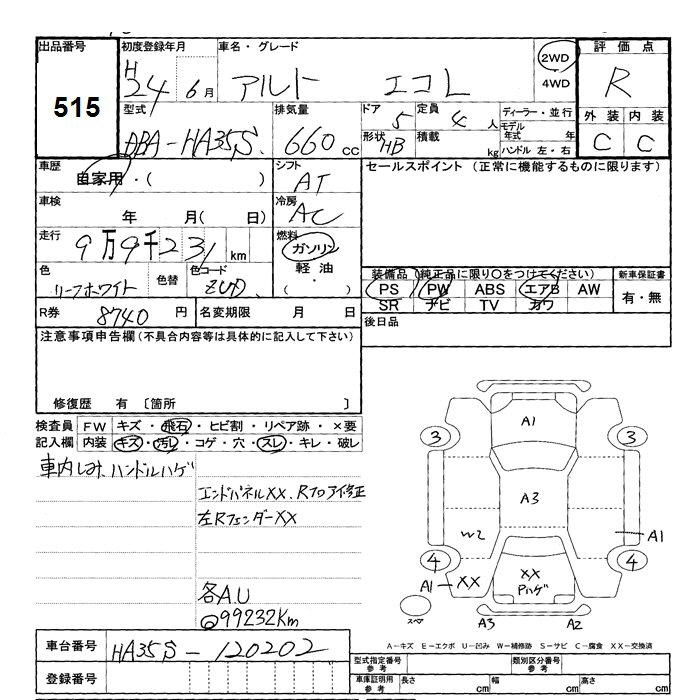 出品番号
515
初度登録年月
H
24 6月
車名・グレード
アルト エコL
2WD
4WD
評価点
R
外装 内装
C C
型式
DBA-HA35S
排気量
660 cc
ドア
5
定員
4 人
形状 HB
積載 kg
ディーラー・並行
モデル年式 年
ハンドル 左・右
車歴
自家用・( )
シフト
AT
セールスポイント (正常に機能するものに限ります)
車検
年 月( 日)
冷房
AC
走行
9万9千231 km
燃料
ガソリン
軽油
( ・ )
色
リーフホワイト
色替
色コード
ZUD
装備品 (純正品に限り○をつけてください)
新車保証書
PS PW ABS エアB AW
有・無
SR ナビ TV カワ
R券 8740 円
名変期限 月 日
後日品
注意事項申告欄(不具合内容等は具体的に記入して下さい)
修復歴 有 〔箇所 〕
検査員 FW キズ・飛石・ヒビ割・リペア跡・×要
記入欄 内装 キズ・汚レ・コゲ・穴・スレ・キレ・破レ
車内しみ、ハンドルハゲ
エンドパネルXX、Rフロアイ修正
左RフェンダーXX
各A.U
@99232Km
A1
3 3
A3
W2
A1
4 4
A1 XX
XX
Pハゲ
スペア
A3 A2
A-キズ E-エクボ U-凹み W-補修跡 S-サビ C-腐食 XX-交換済
車台番号 HA35S-120202
登録番号
型式指定番号 参考
類別区分番号 参考
車庫証明用 参考
長さ cm 幅 cm 高さ cm